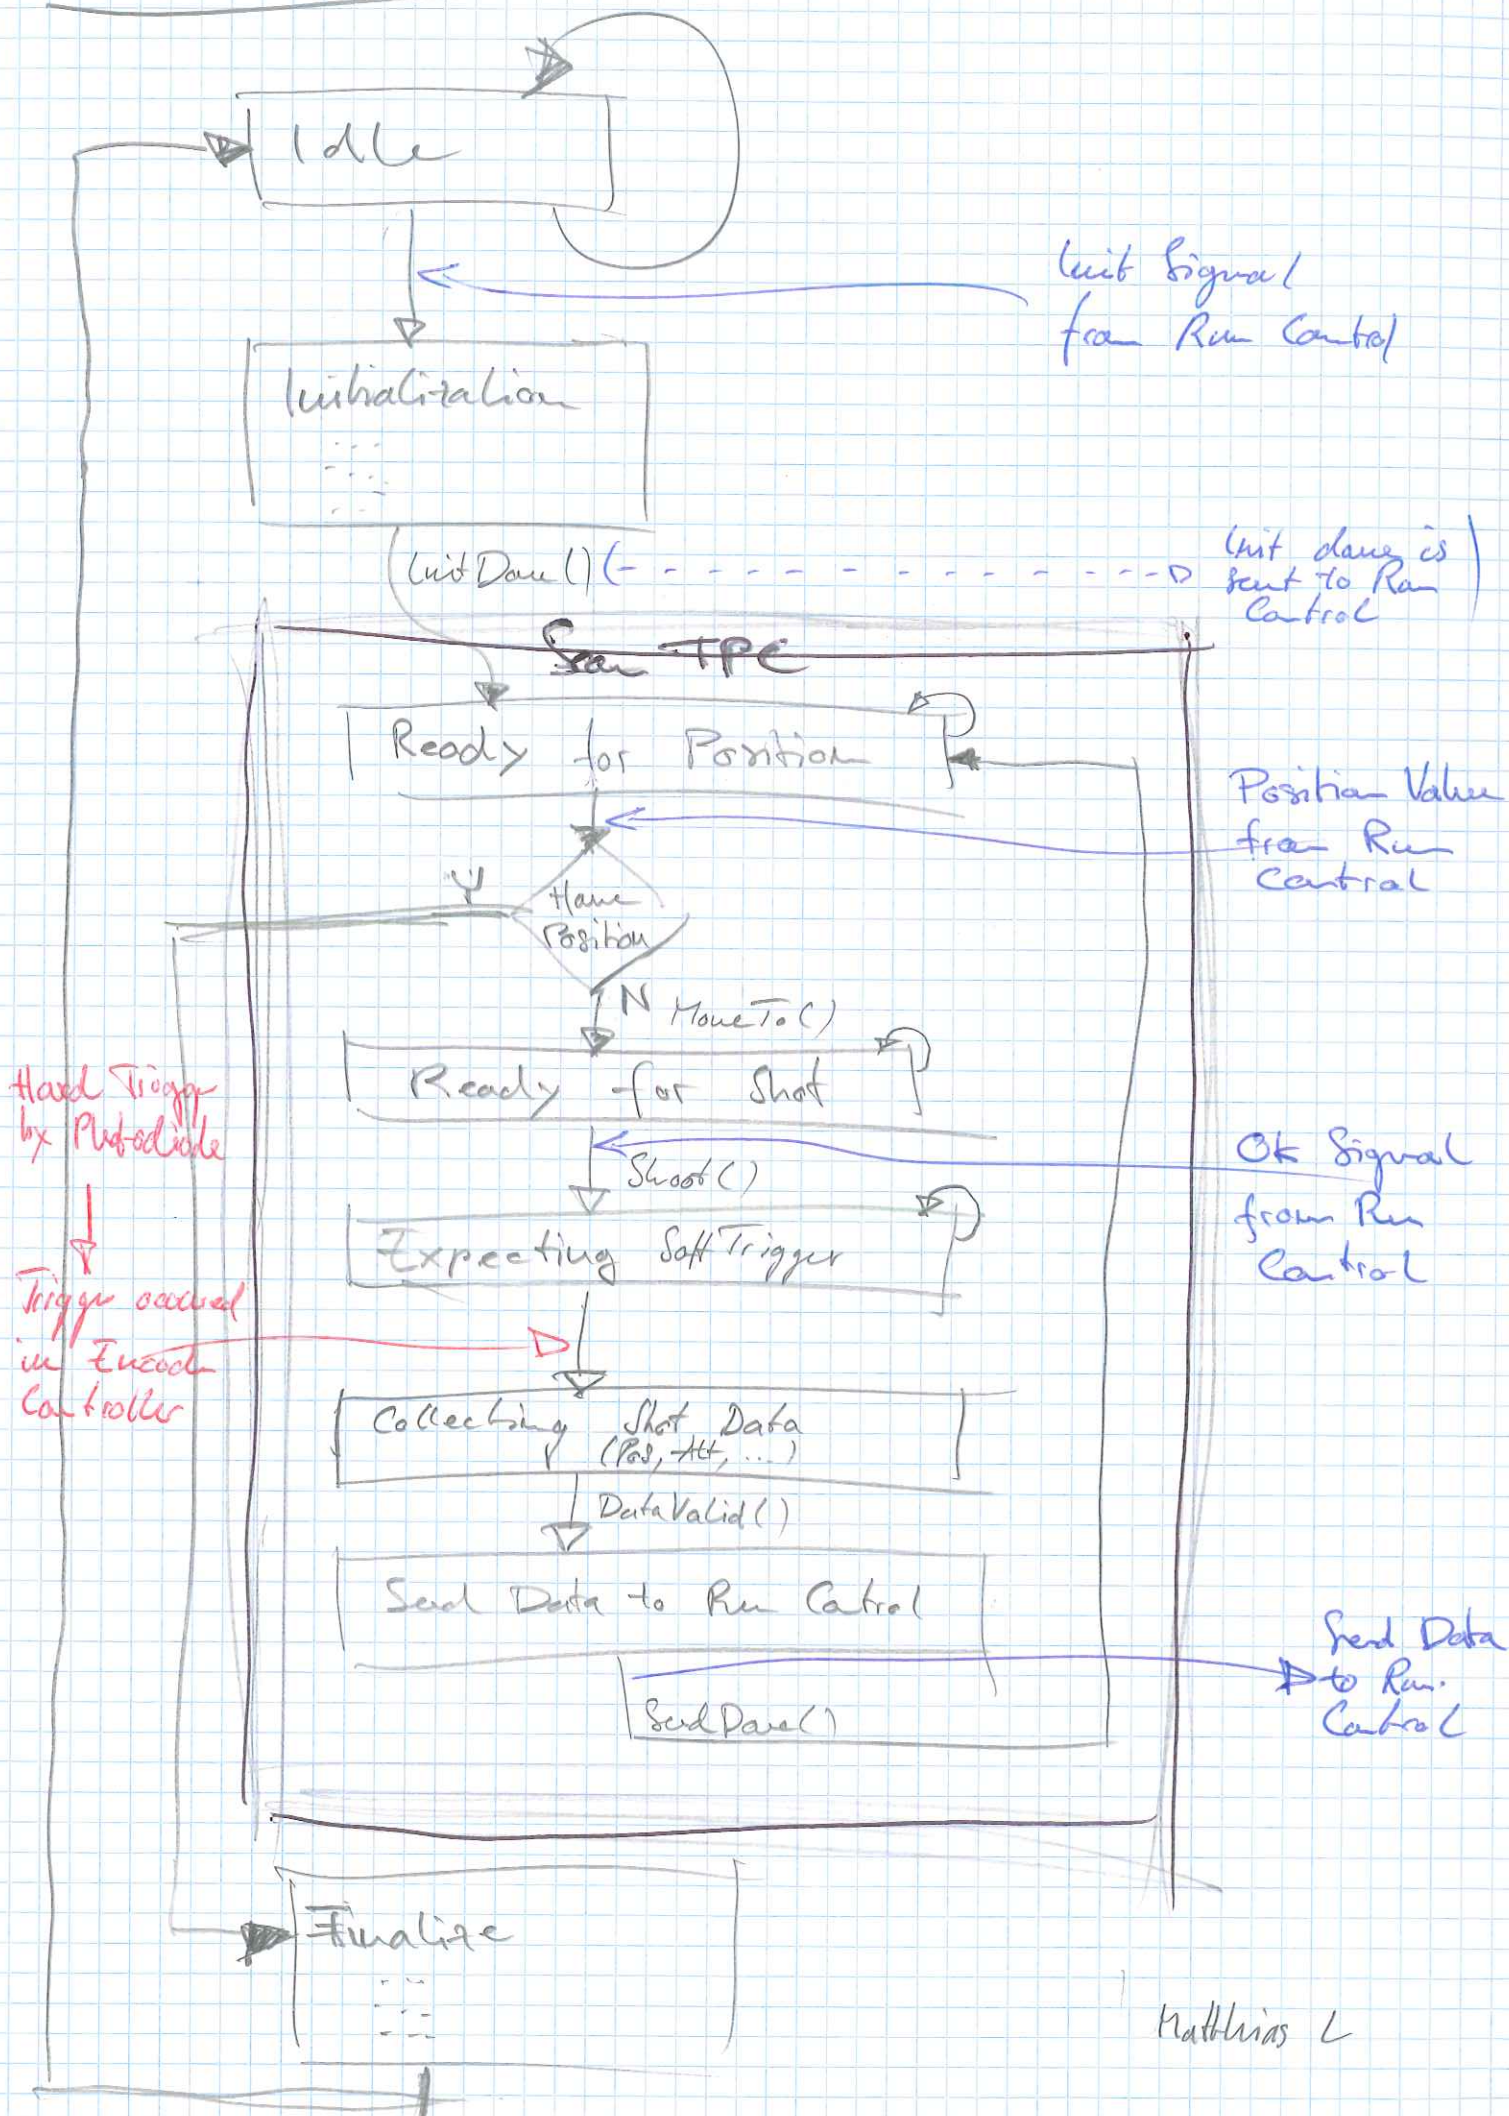 Idle
Init Signal
from Run Control
Initialization
InitDone()
Init done is
sent to Run
Control
Scan TPC
Ready for Position
Position Value
from Run
Control
Y
Have
Position
N MoveTo()
Ready for Shot
Hard Trigger
by Photodiode
Shoot()
Ok Signal
from Run
Control
Expecting SoftTrigger
Trigger occured
in Encoder
Controller
Collecting Shot Data
(Pos, Att, ...)
DataValid()
Send Data to Run Control
Send Data
to Run
Control
SendDone()
Finalize
Matthias L